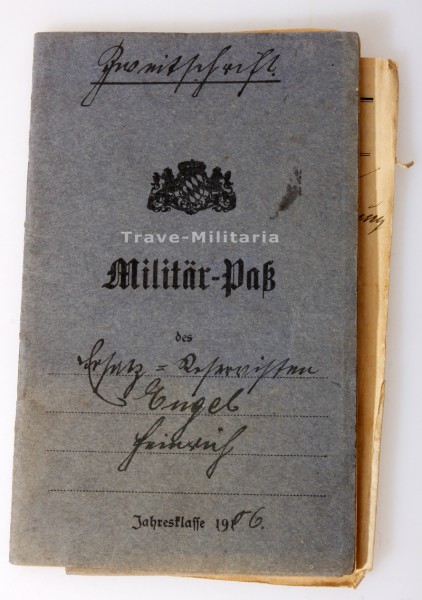 Zweitschrift.
Trave-Militaria
Militär-Paß
des
Ersatz = Reservisten
Engel
Heinrich
Jahresklasse 19 6.